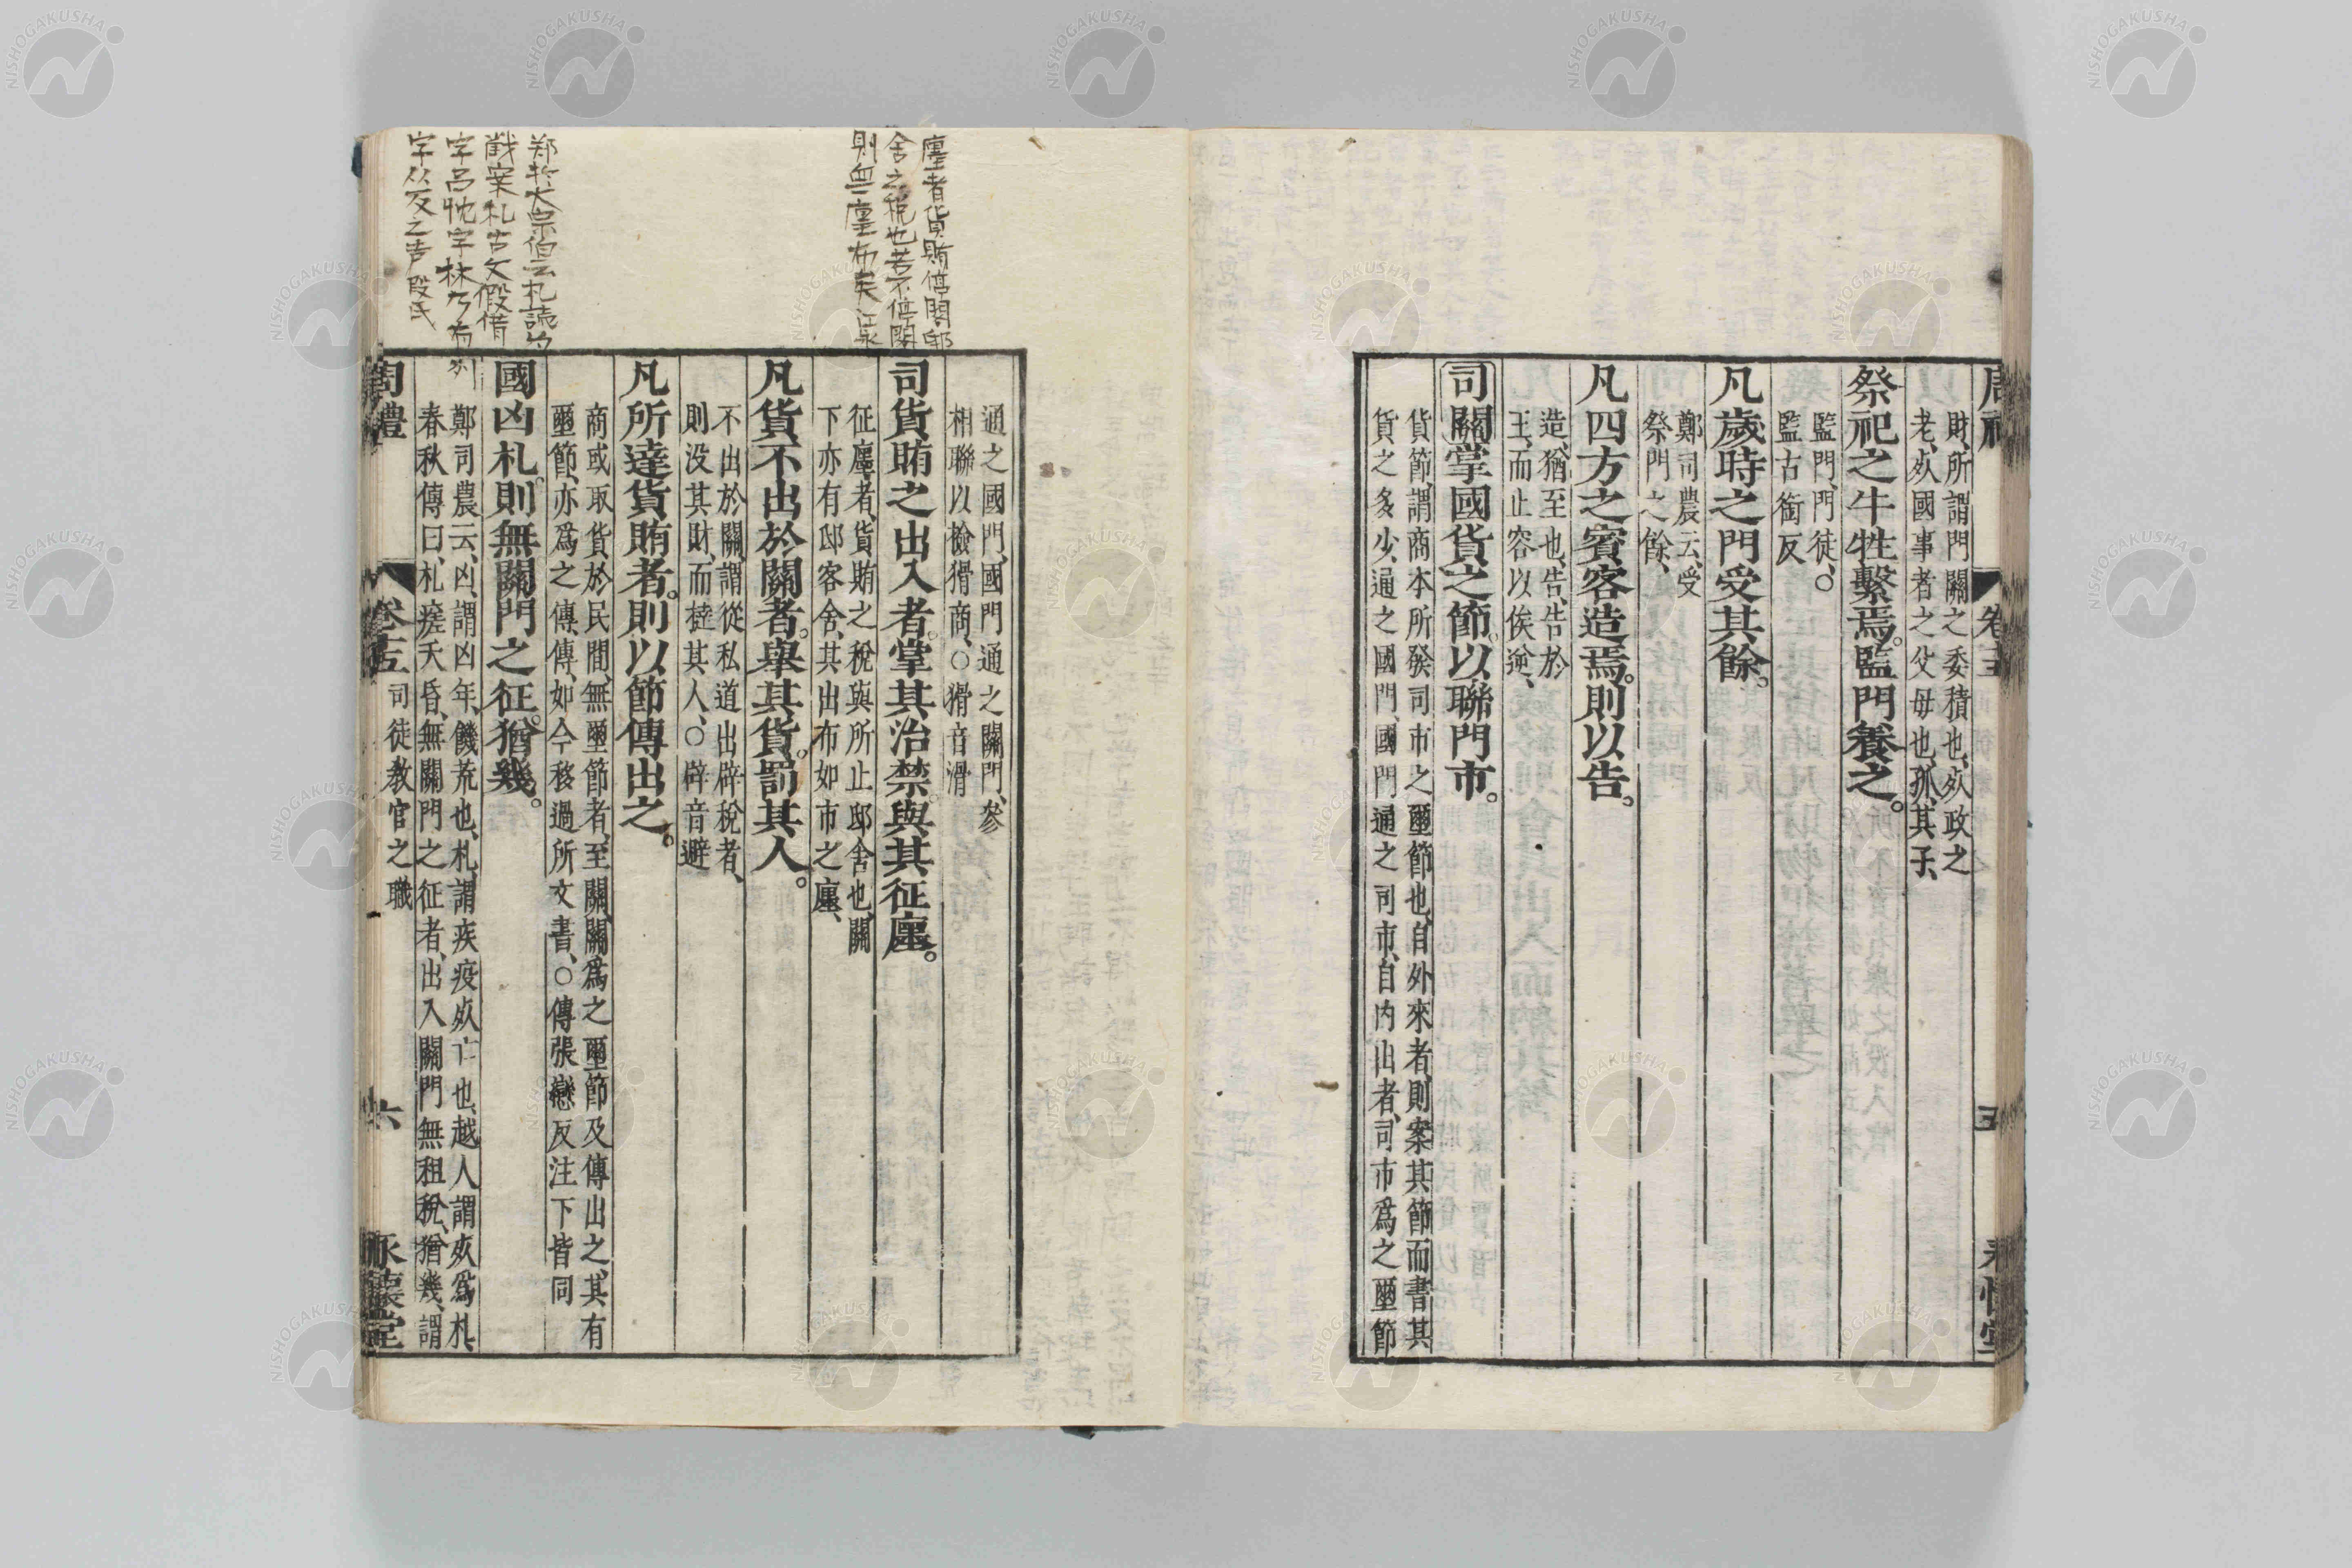 財、所謂門關之委積也、死政之
老、死國事者之父母也、孤、其子、
祭祀之牛牲繫焉。監門養之。
監門、門徒、○
監古銜反
凡歲時之門受其餘。
鄭司農云、受
祭門之餘、
凡四方之賓客造焉。則以告。
造、猶至也、告、告於
王、而止容以俟逆、
司關掌國貨之節。以聯門市。
貨節、謂商本所發司市之璽節也、自外來者、則案其節而書其
貨之多少、通之國門、國門通之司市、自內出者、司市爲之璽節
通之國門、國門通之關門、參
相聯以檢猾商、○猾音滑
司貨賄之出入者。掌其治禁。與其征廛。
征廛者、貨賄之稅與所止邸舍也、關
下亦有邸客舍、其出布如市之廛、
凡貨不出於關者。舉其貨。罰其人。
不出於關、謂從私道出辟稅者、
則没其財、而撻其人、○辟音避
凡所達貨賄者。則以節傳出之。
商或取貨於民間、無璽節者、至關、關爲之璽節及傳出之、其有
璽節、亦爲之傳、傳、如今移過所文書、○傳張戀反注下皆同
國凶札。則無關門之征。猶幾。
鄭司農云、凶、謂凶年、饑荒也、札、謂疾疫死亡也、越人謂死爲札、
春秋傳曰、札瘥夭昏、無關門之征者、出入關門無租稅、猶幾、謂
周禮 卷十五 司徒教官之職 十六 永懷堂
廛者貨賄停閣邸
舍之稅也若不停閣
則無廛布矣 江永
郑於大宗伯云札讀为
截案札古文假借
字呂忱字林
字从歹之声段氏